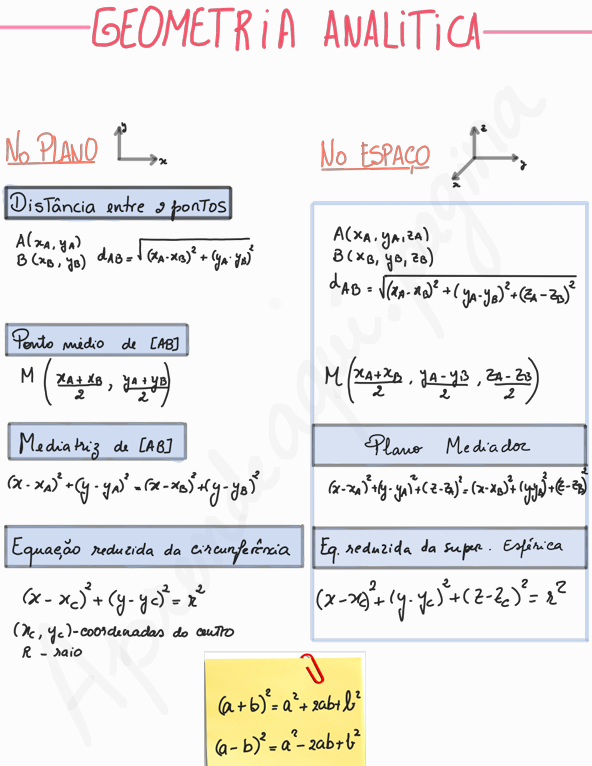 GEOMETRIA ANALITICA
No PLANO
y
x
Distância entre 2 pontos
A(xA, yA)
B(xB, yB) dAB = √(xA-xB)² + (yA-yB)²
Ponto médio de [AB]
M (xA + xB / 2, yA + yB / 2)
Mediatriz de [AB]
(x - xA)² + (y - yA)² = (x - xB)² + (y - yB)²
Equação reduzida da circunferência
(x - xc)² + (y - yc)² = r²
(xc, yc) - coordenadas do centro
R - raio
No ESPAÇO
z
y
x
A(xA, yA, zA)
B(xB, yB, zB)
dAB = √(xA - xB)² + (yA - yB)² + (zA - zB)²
M (xA + xB / 2, yA - yB / 2, zA - zB / 2)
Plano Mediador
(x - xA)² + (y - yA)² + (z - zA)² = (x - xB)² + (y yB)² + (z - zB)²
Eq. reduzida da super. Esférica
(x - xc)² + (y - yc)² + (z - zc)² = r²
(a + b)² = a² + 2ab + b²
(a - b)² = a² - 2ab + b²
Aprendeaqui.pagina